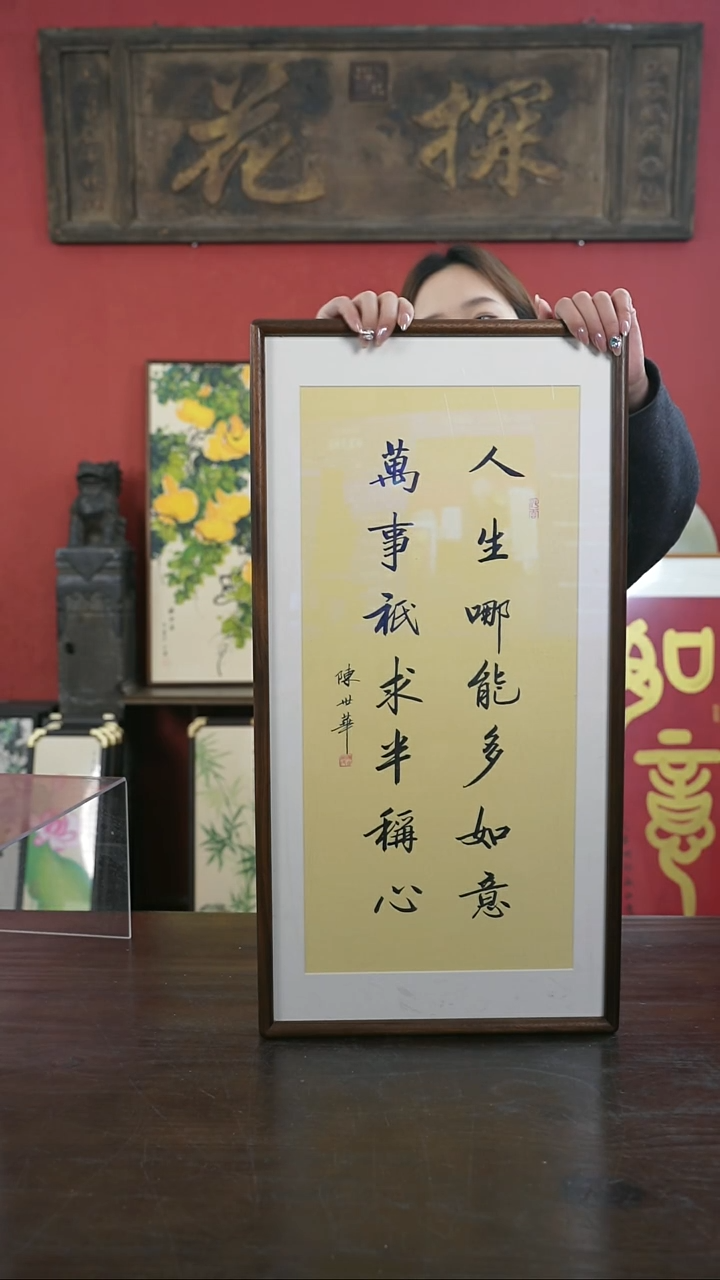 探花
人生哪能多如意
萬事祇求半稱心
陳世華
如意